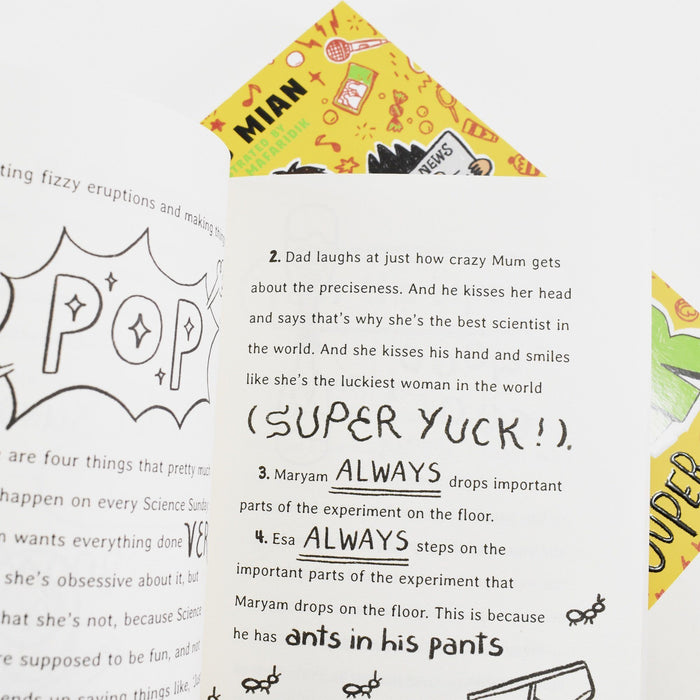 MIAN
MAFARIDIK
NEWS
SUPER
ting fizzy eruptions and making
POP
are four things that pretty much
happen on every Science Sunday
wants everything done VER
she's obsessive about it, but
hat she's not, because Science
re supposed to be fun, and not
ends up saying things like,
2. Dad laughs at just how crazy Mum gets
about the preciseness. And he kisses her head
and says that's why she's the best scientist in
the world. And she kisses his hand and smiles
like she's the luckiest woman in the world
(SUPER YUCK!).
3. Maryam ALWAYS drops important
parts of the experiment on the floor.
4. Esa ALWAYS steps on the
important parts of the experiment that
Maryam drops on the floor. This is because
he has ants in his pants